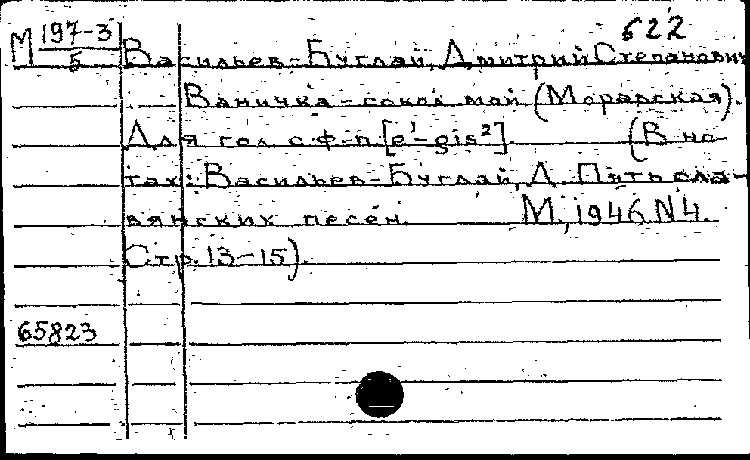 622
М 197-3/5 Васильев-Буглай, Дмитрий Степанович
Ваничка-сокол мой (Моравская).
Для гол. с ф-п. [e¹-gis²] (В но-
тах: Васильев-Буглай, Д. Пять сла-
вянских песен. М., 1946 N4.
Стр. 13-15).
65823